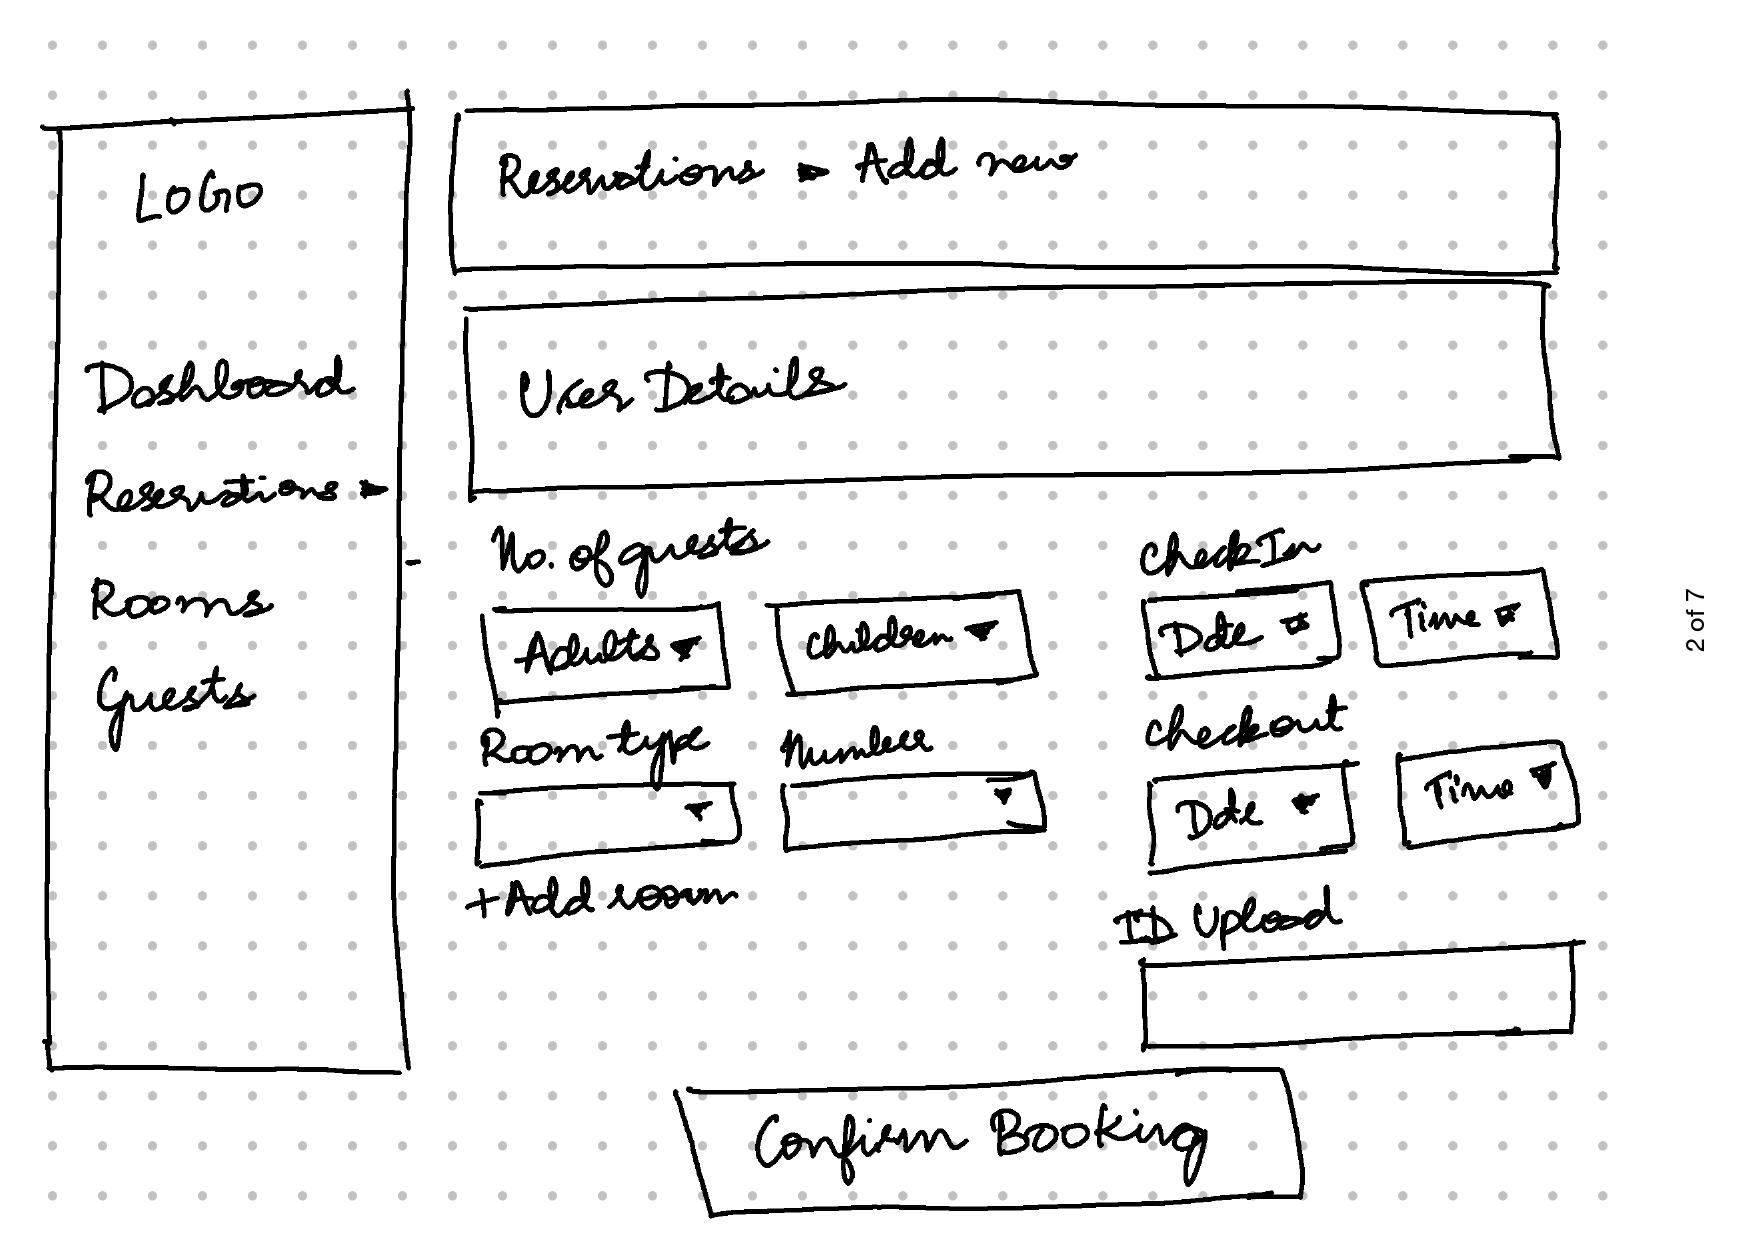 LOGO
Dashboard
Reservations
Rooms
Guests
Reservations Add new
User Details
No. of guests
Adults
children
Room type
Number
+Add room
CheckIn
Date
Time
Checkout
Date
Time
ID Upload
Confirm Booking
2 of 7